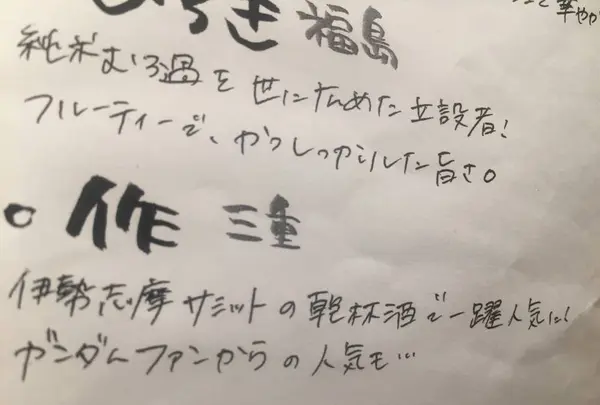 華やか
ひろき 福島
純米むろ過を世に広めた立設者!
フルーティーで、かつしっかりした旨さ。
○作 三重
伊勢志摩サミットの乾杯酒で一躍人気に!
ガンダムファンからの人気も…